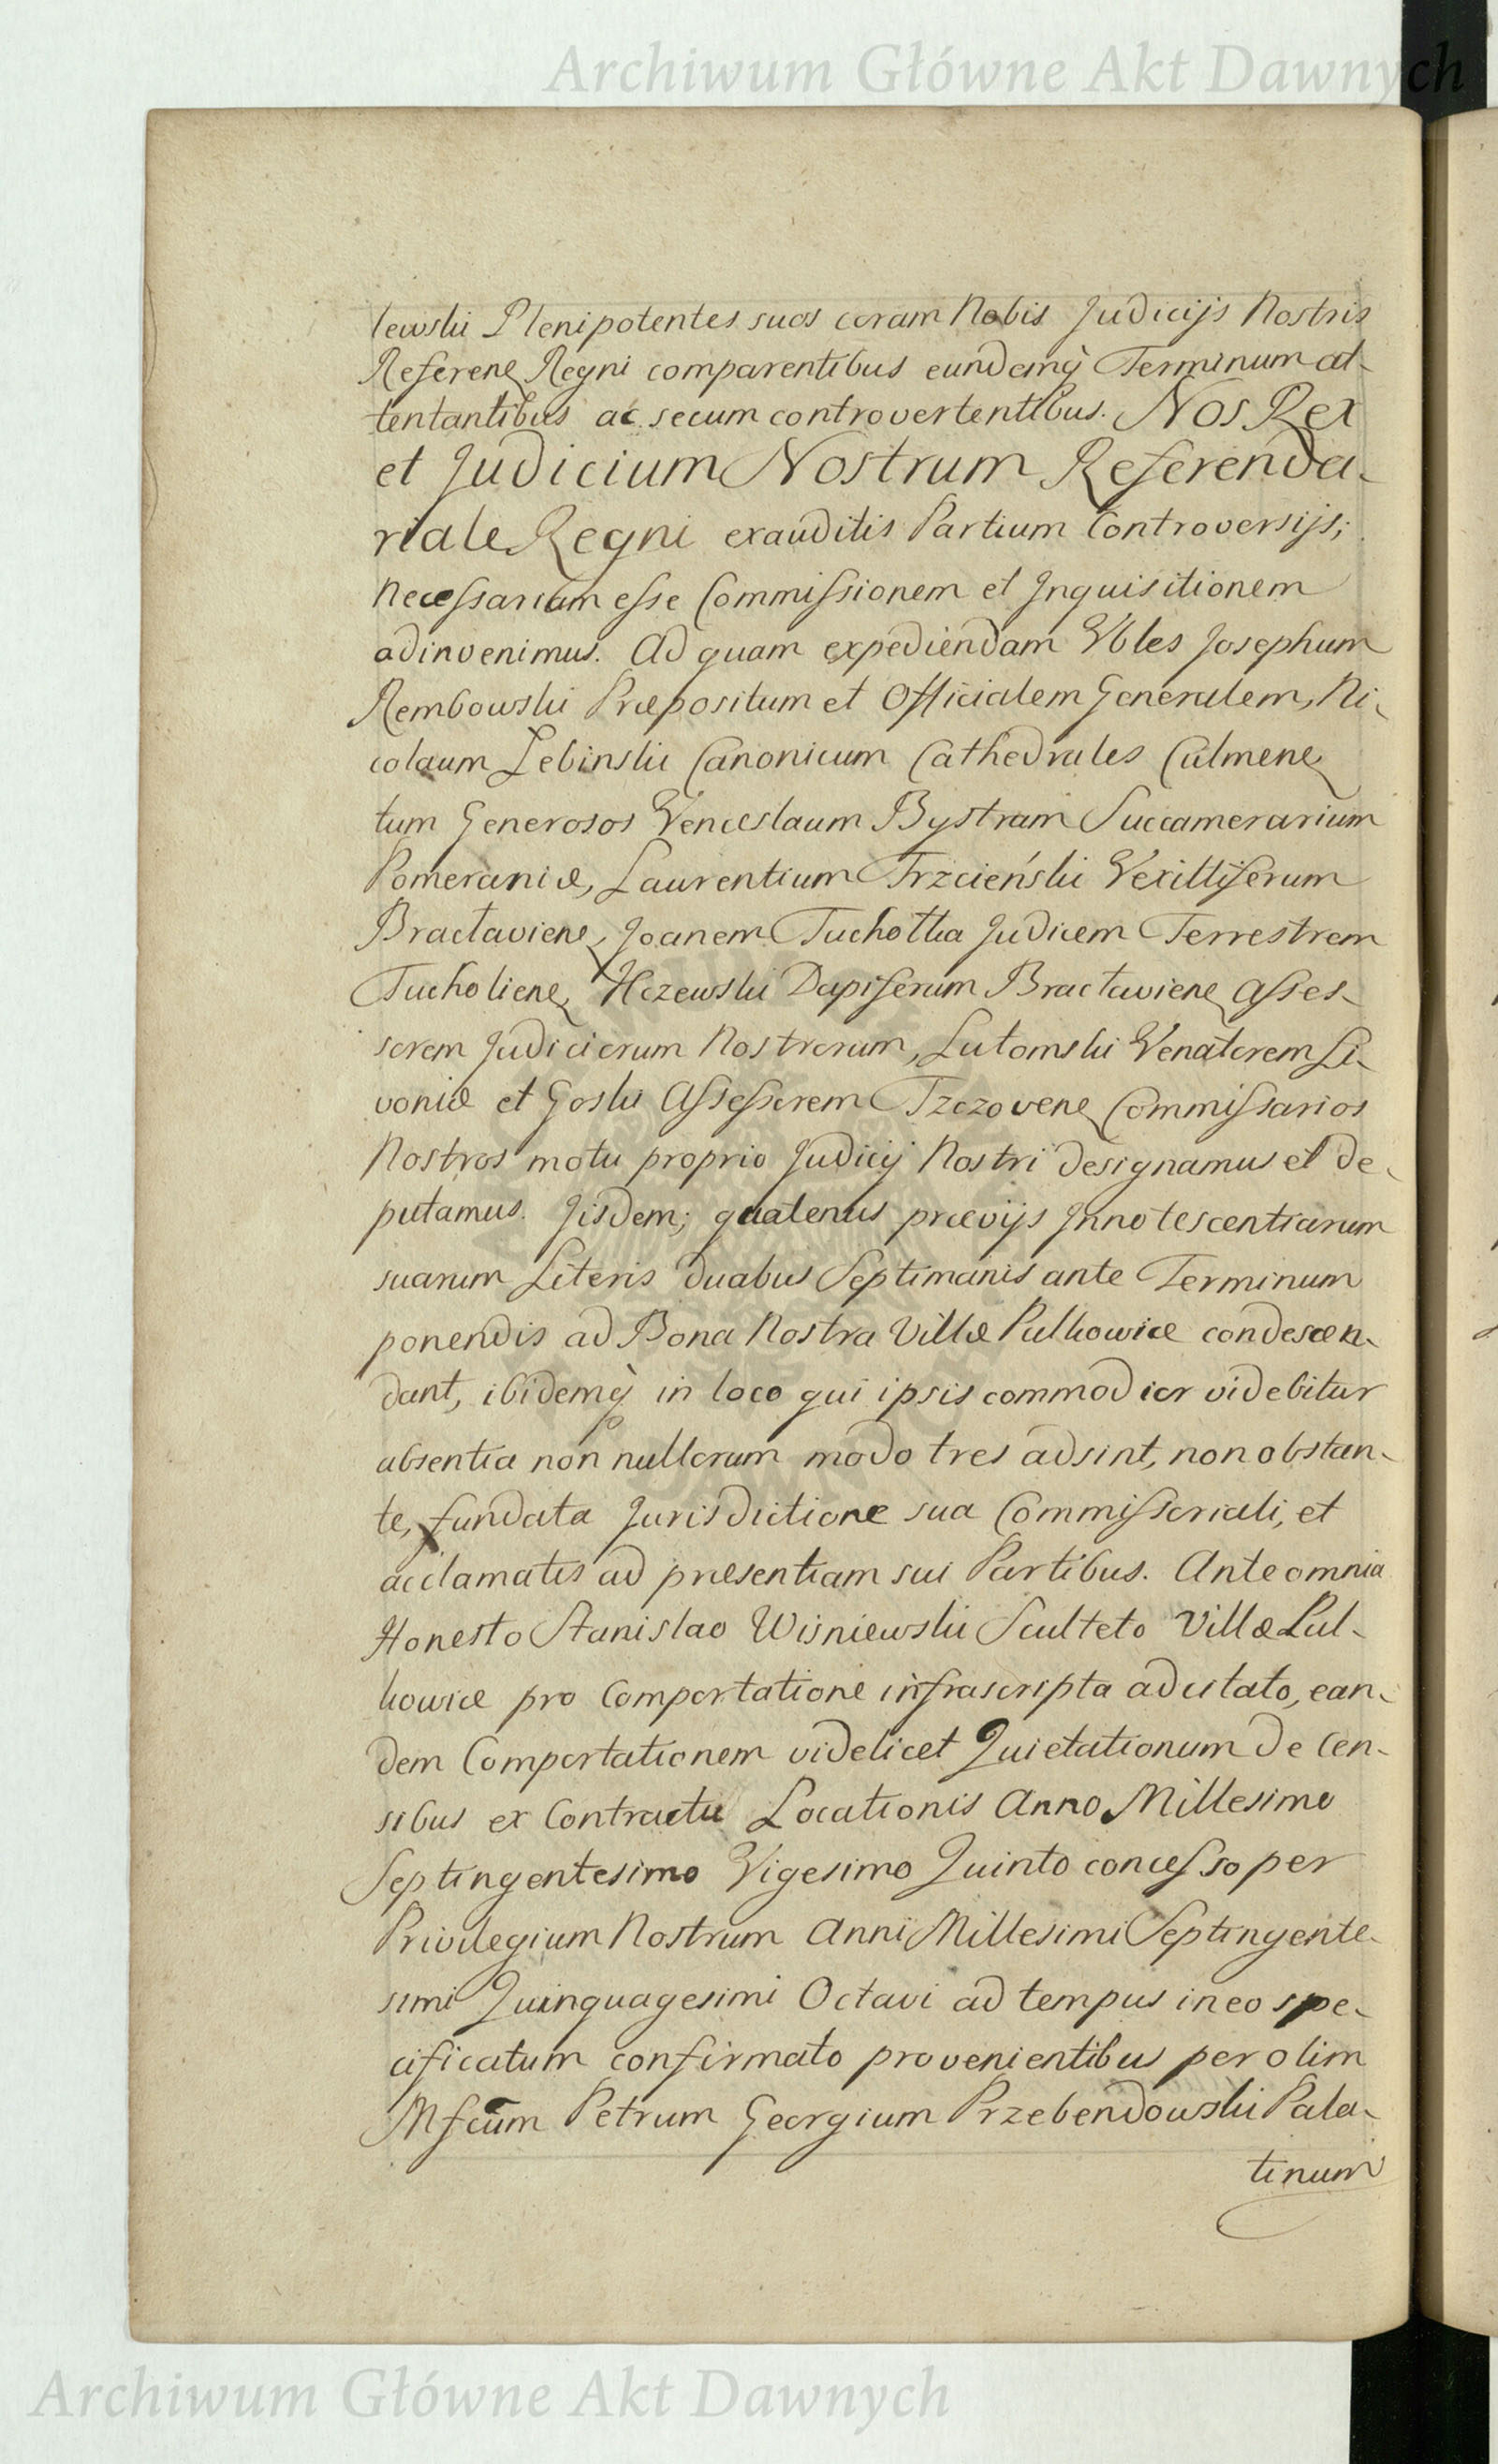 Archiwum Główne Akt Dawnych
lewski Plenipotentes suos coram Nobis Judicijs Nostris
Referen Regni comparentibus eundemq̀ Terminum at-
tentantibus ac secum controvertentibus. Nos Rex
et Judicium Nostrum Referenda-
riale Regni exauditis Partium Controversijs;
necessariam esse Commissionem et Inquisitionem
adinvenimus. Ad quam expediendam Vbles Josephum
Rembowski Præpositum et Officialem Generalem, Ni-
colaum Łebinski Canonicum Cathedrales Culmene
tum Generosos Venceslaum Bystram Succamerarium
Pomeraniæ, Laurentium Trzcieński Vexilliferum
Braclaviene, Joanem Tuchołka Judicem Terrestrem
Tucholiene, Hczewski Dapiferum Braclaviene Asses-
sorem Judiciorum Nostrorum, Lutomski Venatorem Li-
voniæ et Goski Assessorem Tzczovene Commissarios
Nostros motu proprio Judicij Nostri designamus et de-
putamus. Jisdem; quatenus prævijs Innotescentiarum
suarum Literis duabus Septimanis ante Terminum
ponendis ad Bona Nostra Villæ Pulkowice condescen-
dant, ibidemq̀ in loco qui ipsis commodior videbitur
absentia non nullorum modo tres adsint, non obstan-
te, fundata Jurisdictione sua Commissoriali, et
acclamatis ad præsentiam sui Partibus. Ante omnia
Honesto Stanislao Wisniewski Sculteto Villæ Pul-
kowice pro Comportatione infrascripta adcitato, ean-
dem Comportationem videlicet Quietationum de Cen-
sibus ex Contractu Locationis Anno Millesimo
Septingentesimo Vigesimo Quinto concesso per
Privilegium Nostrum Anni Millesimi Septingente-
simi Quinquagesimi Octavi ad tempus in eo spe-
cificatum confirmato provenientibus per olim
Mfcum Petrum Georgium Przebendowski Pala-
tinum
Archiwum Główne Akt Dawnych